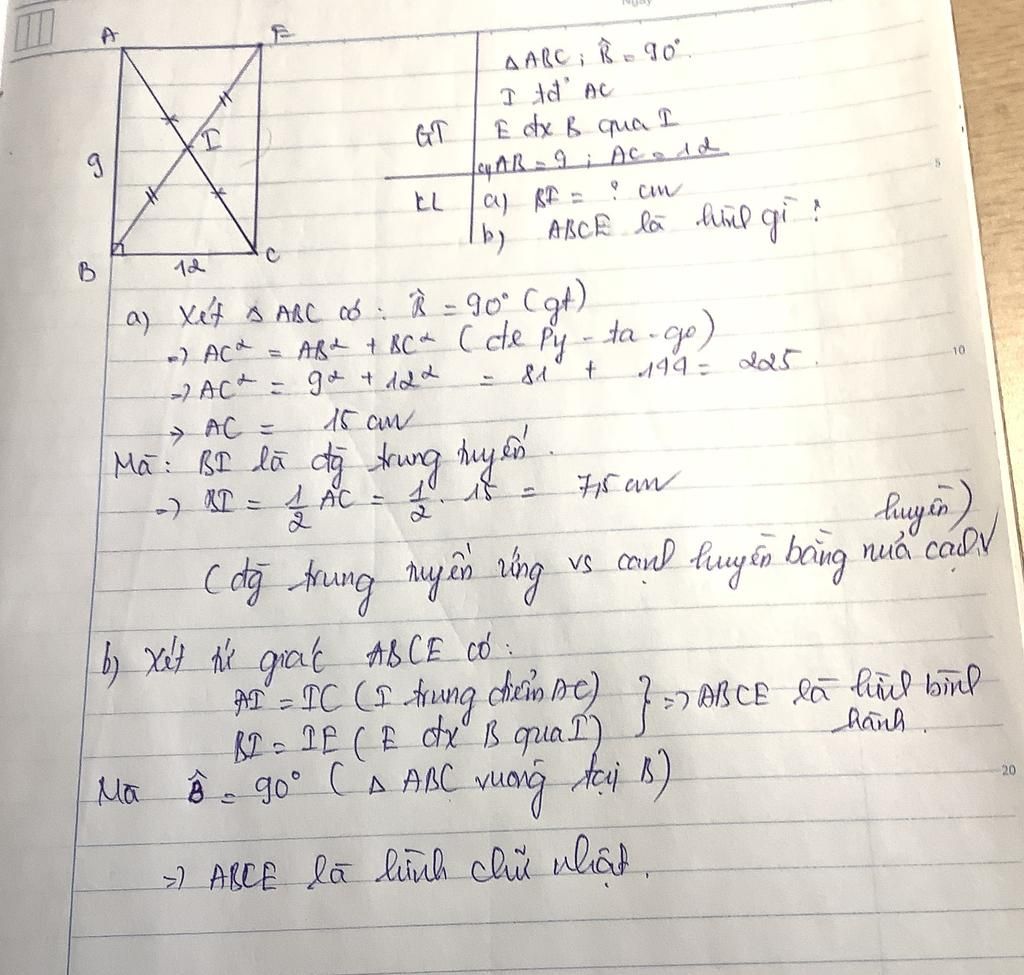 Ngày
A
E
I
9
B
12
C
GT
∆ABC ; B̂ = 90°
I tđ' AC
E đx B qua I
AB = 9 ; AC = 12
KL
a) BI = ? cm
b) ABCE là hình gì ?
5
a) Xét ∆ ABC có : B̂ = 90° (gt)
=> AC² = AB² + BC² (đl Py - ta - go)
=> AC² = 9² + 12² = 81 + 144 = 225.
10
=> AC = 15 cm
Mà : BI là đg trung tuyến.
=> BI = 1/2 AC = 1/2 . 15 = 7,5 cm
(đg trung tuyến ứng vs cạnh huyền bằng nửa cạnh huyền)
b) Xét tứ giác ABCE có :
AI = IC ( I trung điểm AC)
BI = IE ( E đx B qua I)
} => ABCE là hình bình hành.
Mà B̂ = 90° ( ∆ ABC vuông tại B)
20
=> ABCE là hình chữ nhật.